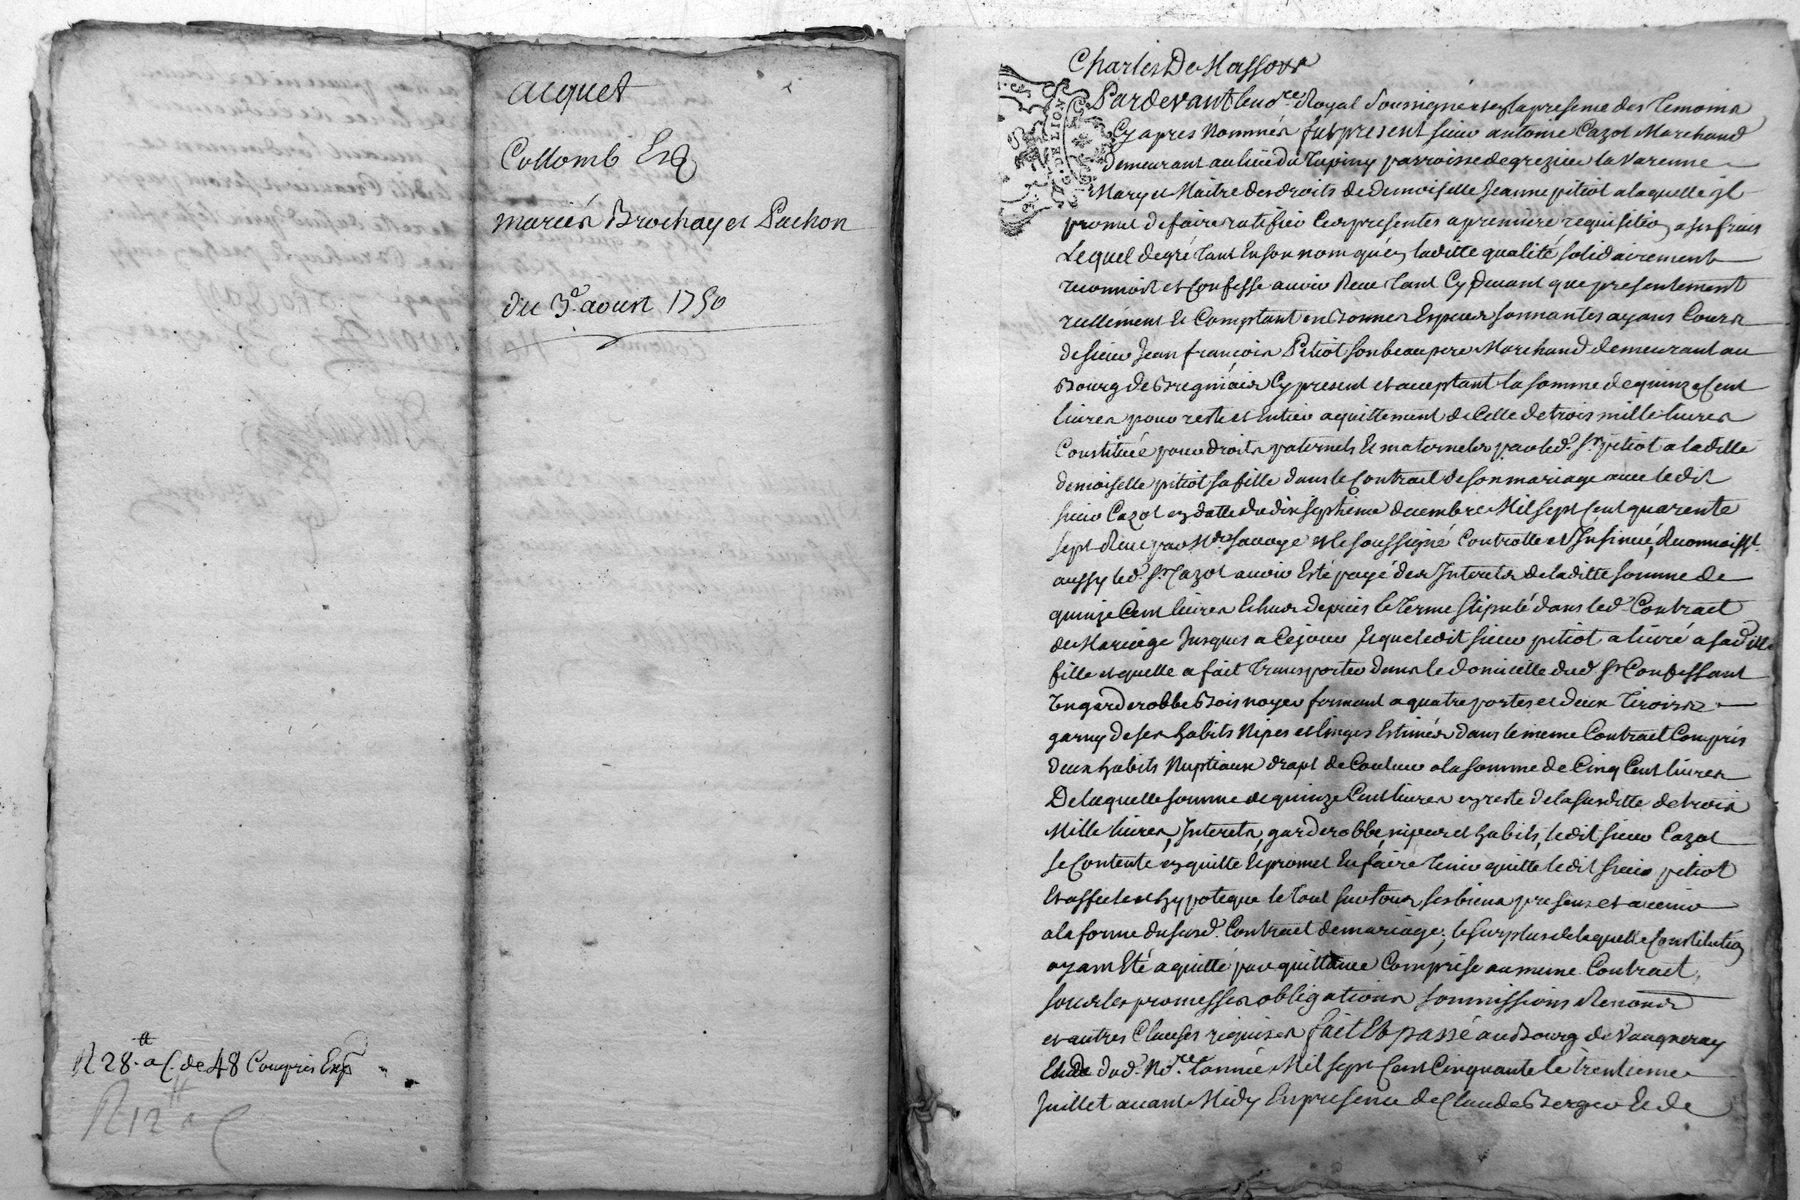 acquet
Collomb Esq
mariés Brochay et Pachon
du 3e aoust 1750
R 28.tt a C. de 48 Compris Exp
R 12tt a C
Charles De Masson
G. DE LION
Pardevant le no.re Royal Soussigné et en la presence des Temoins
Cy apres Nommés fut present sieur antoine Cazot Marchand
demeurant au lieu du Tupiny parroisse de grezieu la Varenne
Mary et Maitre des droits de demoiselle Jeanne pitiot a laquelle il
promet de faire ratifier Ces presentes a premiere requisition a ses frais
Lequel de gré tant En son nom qu'en laditte qualité solidairement
reconnoit et Confesse avoir Reçu Tant Cy devant que presentement
reellement et Comptant en Bonnes Especes sonnantes ayans Cours
de sieur Jean françois Pitiot son beaupere Marchand demeurant au
Bourg de Bregniais Cy present et acceptant la somme de quinze Cent
livres pour reste et Entier aquittement de Celle de trois mille livres
Constituée pour droits paternels et maternels par led. Sr. pitiot a laditte
demoiselle pitiot sa fille dans le Contract de son mariage avec ledit
sieur Cazot en datte du dix septieme decembre Mil sept Cent quarente
sept Reçu par Me. Sauvage et le soussigné Controllé et Insinué, Reconnoisst.
aussy led. Sr. Cazot avoir Esté payé des Interets de laditte somme de
quinze Cent livres Echus depuis le Terme stipulé dans led. Contract
de Mariage Jusques a Ce jour, Et que ledit sieur pitiot a livré a sad. ditte
fille et quelle a fait Transporter dans le domicille dud. Sr. Confessant
Un garderobbe Bois noyer fermant a quatre portes et deux Tiroirs
garny de ses habits Nipes et linges Estimés dans le meme Contract Compris
deux habits Nuptiaux drapt de Couleur a la somme de Cinq Cent livres
De laquelle somme de quinze Cent livres en reste de la susditte de trois
Mille livres, Interets, garderobbe nipes et habits, ledit sieur Cazot
se Contente en quitte Et promet En faire Tenir quitte ledit sieur pitiot
Et affecte et hypoteque le Tout sur tous ses biens presens et a venir
a la forme du susd. Contract de mariage, le surplus de laquelle Constitution
ayant Eté aquitté par quittance Comprise au meme Contract,
sous les promesses obligations soumissions Renonons
et autres Clauses requises fait Et passé au Bourg de Vaugneray
Etude dud. No.re L'année Mil sept Cent Cinquante le trentieme
Juillet avant Midy En presence de Claude Berger Et de